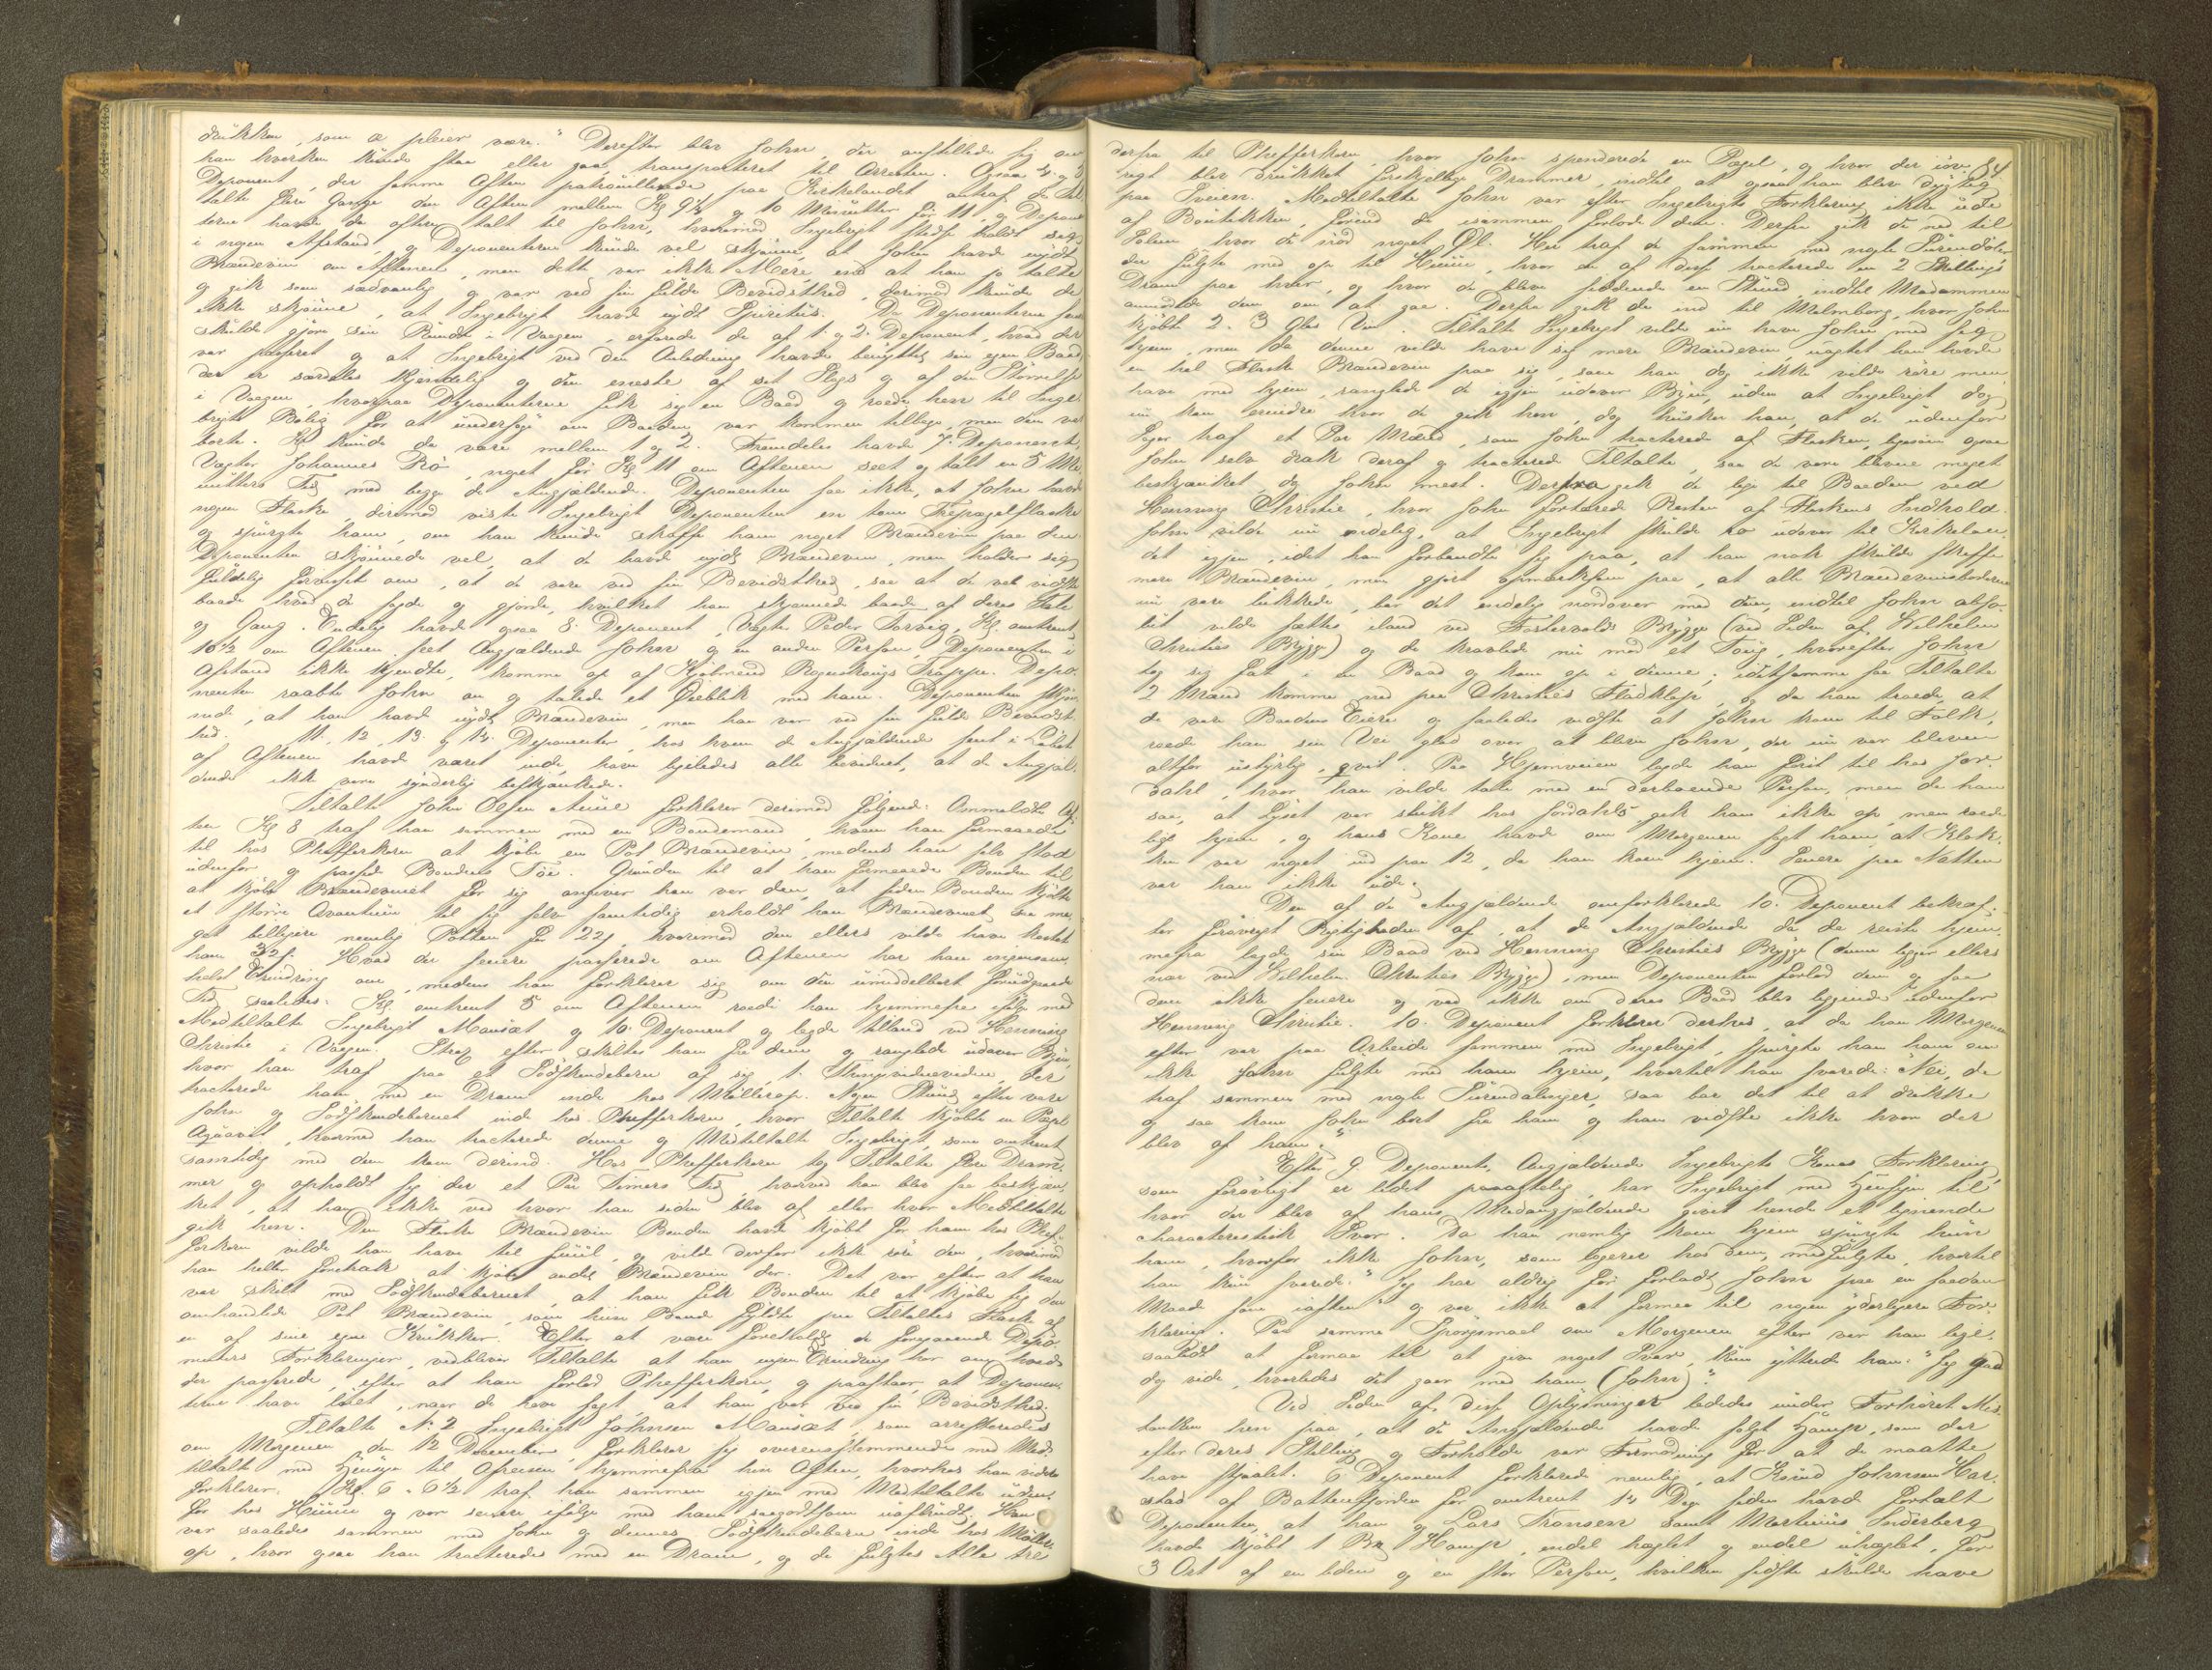 drukken, som æ pleier være." Derefter blev John, der anstillede sig om
han hverken kunde staa eller gaa, transporteret til Arresten. Ogsaa 4. og 3
Deponent, der samme Aften patrouillerede paa Kirkelandet antraf de Til
talte flere Gange den Aften mellem Kl 9½ og 10 Minutter før 11, og Depone
terne havde da oftere talt til John, hvorimod Ingebrigt stedse holdt sig
i nogen Afstand, og Deponenterne kunde vel skjønne, at John havde nydt
Brændeviin om Aftenen, men dette var ikke Mere, end at han jo talte
og gik som sædvanlig og var ved sin fulde Bevidsthed, derimod kunde de
ikke skjønne, at Ingebrigt havde nydt Spirituosa. Da Deponenterne
skulde gjøre sin Runde i Vaagen, erfarede de af 1. og 2. Deponent, hvad der
var passeret og at Ingebrigt ved den Anledning havde benyttet sin egen Baad,
der er særdeles kjendelig og den eneste af sit Slags og af den Størrelse
i Vaagen, hvorpaa Deponenterne fik sig en Baad og roede hen til Inge
brigts Bolig for at undersøge om Baaden var kommen tilbage, men den var
borte. Kl kunde da være mellem 1 og 2. Fremdeles havde 7. Deponent,
Vægter Johannes Bø, noget før Kl 11 om Aftenen, seet og talt en 5 Mi
nutters Tid med begge de Angjældende. Deponenten saa ikke, at John havde
nogen Flaske, derimod viste Ingebrigt Deponenten en tom Trepægelflaske
og spurgte ham, om han kunde skaffe ham noget Brændeviin paa den
Deponenten skjønnede vel, at de havde nydt Brændeviin, men holder sig
fuldelig forvisset om, at de vare ved sin Bevidsthed, saa at de vel vidste
baade hvad de sagde og gjorde, hvilket han skjønnede baade af deres Tale
og Gang. Endelig havde ogsaa 8. Deponent, Vægter Peder Sørvig, Kl. omtrent
10½ om Aftenen seet Angjældende John og en anden Person, Deponenten i
Afstand ikke kjendte, komme op af Kjøbmand Rognskougs Trappe. Depo
nenten raabte John an og talede et Øieblik med ham. Deponenten skjøn
nede, at han havde nydt Brændeviin, men han var ved sin fulde Bevidst
hed. 11. 12. 13. og 14. Deponenter, hos hvem de Angjældende sent i Løbet
af Aftenen havde været inde, have ligeledes alle bevidnet, at de Angjæl
dende ikke vare synderlig beskjænkede.
Tiltalte John Olsen Aune forklarer derimod Følgende: Ommeldte Af
ten Kl 8 traf han sammen med en Bondemand, hvem han formaaede
til hos Pheffertkorn at kjøbe en Pot Brændeviin, medens han selv stod
udenfor og passede Bondens Tøi. Grunden til at han formaaede Bonden til
at kjøbe Brændeviinet for sig angiver han var den, at siden Bonden kjøbte
et større Qvantum til sig selv samtidig erholdt han Brændeviinet saa me
get billigere nemlig Potten for 22ß, hvorimod den ellers vilde have kostet
ham 32ß. Hvad der senere passerede om Aftenen har han ingensom
helst Erindring om, medens han forklarer sig om den umiddelbart forudgaaende
Tid saaledes: Kl. omtrent 5 om Aftenen roede han hjemmefra ifølge med
Medtiltalte Ingebrigt Mausæt og 10. Deponent og lagde tilland ved Henning
Christie i Vaagen. Strax efter skiltes han fra dem og ranglede udover Byen,
hvor han traf paa et Sødskendebarn af sig, 1. Thingsvidnevidne, der
tracterede ham med en Dram inde hos Møllerop. Nogen Stund efter vare
John og Sødskendebarnet inde hos Pheffertkorn, hvor Tiltalte kjøbte en Pægel
Aqvavit, hvormed han tracterede denne og Medtiltalte Ingebrigt, som omtrent
samtidig med dem kom derind. Hos Pheffertkorn tog Tiltalte flere Dram
mer og opholdt sig der et Par Timers Tid, hvorved han blev saa beskjæn
ket, at han ikke ved hvor han siden blev af eller hvor Medtiltalte
gik hen. Den Flaske Brændeviin Bonden havde kjøbt for ham hos Phef
fertkorn vilde han have til Juul, og vilde derfor ikke røre den, hvorimod
han heller foretrak at kjøbe andet Brændeviin der. Det var efter at han
var skilt med Sødskendebarnet, at han fik Bonden til at kjøbe sig den
omhandlede Pot Brændeviin, som hiin Bonde fyldte paa Tiltaltes Flaske af
en af sine egne Krukker. Efter at være foreholdt de foregaaende Depo
nenters Forklaringer, vedbliver Tiltalte at han ingen Erindring har om hvad
der passerede, efter at han forlod Pheffertkorn, og paastaar, at Deponen
terne have løiet, naar de have sagt, at han var ved sin Bevidsthed.
Tiltalte No 2 Ingebrigt Johnsen Mausæt som arresteredes
om Morgenen den 12 December, forklarer sig overensstemmende med Med
tiltalte med Hensyn til Afreisen hjemmefra hin Aften, hvorhos han videre
forklarer. Kl. 6 a 6½ traf han sammen igjen med Medtiltalte uden
for hos Huun og var senere ifølge med ham saagodtsom uafbrudt. Han
var saaledes sammen med John og dennes Sødskendebarn inde hos Møller
op, hvor ogsaa han tracteredes med en Dram, og de fulgtes Alle tre
derfra til Pheffertkorn, hvor John spenderede en Pægel, og hvor der iøv
rigt blev drukket forskjellige Drammer, indtil at ogsaa han blev dygtig
paa Sveien. Medtiltalte John var efter Ingebrigts Forklaring ikke ude
af Boutikken, førend de sammen forlode den. Derfra gik de ned til
Polsen, hvor de nød noget Øl. Her traf de sammen med nogle Surendøler
der fulgte med op til Huun, hvor en af disse tracterede en 2 Skillings
Dram paa hver, og hvor de bleve siddende en Stund indtil Madammen
anmodede dem om at gaae. Derfra gik de ind til Malmborg, hvor John
kjøbte 2-3 Glas Viin. Tiltalte Ingebrigt vilde nu have John med sig
hjem, men da denne vilde have sig mere Brændeviin, uagtet han havde
en hel Flaske Brændeviin paa sig, som han dog ikke vilde røre men
have med hjem, ranglede de igjen udover Byen, uden at Ingebrigt dog
nu kan erindre hvor de gik hen, dog husker han, at de udenfor
Lager traf et Par Mænd, som John tracterede af Flasken, ligesom ogsaa
John selv drak deraf og tracterede Tiltalte, saa de vare blevne meget
beskjænket, dog John mest. Derfra gik de lige til Baaden ved
Henning Christie, hvor John fortærede Resten af Flaskens Indhold.
John vilde nu endelig, at Ingebrigt skulde ro udover til Kirkelan
det igjen, idet han forbandte sig paa, at han nok skulde skaffe
mere Brændeviin, men gjort opmærksom paa, at alle Brændeviinsboderne
nu vare lukkede, bar det endelig nordover med dem, indtil John abso
lut vilde sættes iland ved Fostervolds Brygge (ved Siden af Wilhelm
Christies Brygge) og de kravlede nu med et Toug, hvorefter John
tog sig fat i en Baad og kom op i denne; idetsamme saa Tiltalte
2 Mænd komme ned paa Christies Fladklep, og da han troede, at
de vare Baadens Eiere og saaledes vidste at John kom til Folk,
roede han sin Vei glad over at blive John, der nu var bleven
altfor ustyrlig, qvit. Paa Hjemveien lagde han først til hos Jør
dahl, hvor han vilde tale med en derboende Person, men da han
saa, at Lyset var slukt hos Jørdahls, gik han ikke op men roede
lige hjem, og hans Kone havde om Morgenen sagt ham, at Klok
ken var noget ind paa 12, da han kom hjem. Senere paa Natten
var han ikke ude.
Den af de Angjældende omforklarede 10. Deponent bekræf
ter forøvrigt Rigtigheden af, at de Angjældende da de reiste hjem
mefra lagde sin Baad ved Henning Christies Brygge (denne ligger ellers
nær ved Wilhelm Christies Brygge), men Deponenten forlod dem og saa
dem ikke senere og ved ikke om deres Baad blev liggende udenfor
Henning Christie. 10. Deponent forklarer derhos, at da han Morgenen
efter var paa Arbeide sammen med Ingebrigt, spurgte han ham om
ikke John fulgte med ham hjem, hvortil han svarede: "Nei, de
traf sammen med nogle Surendalinger, saa bar det til at drikke
og saa kom John bort fra ham og han vidste ikke hvor der
blev af ham."
Efter 9. Deponents, Angjældende Ingebrigts Kones Forklaring,
som forøvrigt er lidet paaagtelig, har Ingebrigt med Hensyn til
hvor der blev af hans Medangjældende givet hende et lignende
characteristisk Svar. Da han nemlig kom hjem spurgte hun
ham, hvorfor ikke John, som logerer hos dem, medfulgte, hvortil
han kun svarede: "Jeg har aldrig før forladt John paa en saadan
Maade som iaften" og var ikke at formaae til nogen yderligere For
klaring. Paa samme Spørgsmaal om Morgenen efter var han lige
saalidt at formaa til at give noget Svar, kun yttrede han: "Jeg gad
dog vide, hvorledes det gaar med ham (John)".
Ved Siden af disse Oplysninger lededes under Forhøret Mis
tanken hen paa, at de Angjældende havde solgt Hamp, som der
efter deres Stilling og Forholde var Formodning for at de maatte
have stjaalet. 6. Deponent forklarede nemlig, at Knud Johnsen Har
stad af Battenfjorden for omtrent 14 Dage siden havde fortalt
Deponenten, at han og Lars Tronsen samt Martinus Søderberg
havde kjøbt 1 Bpd Hamp, endel hæglet og endel uhæglet, for
3 Ort af en liden og en stor Person, hvilken sidste skulde have